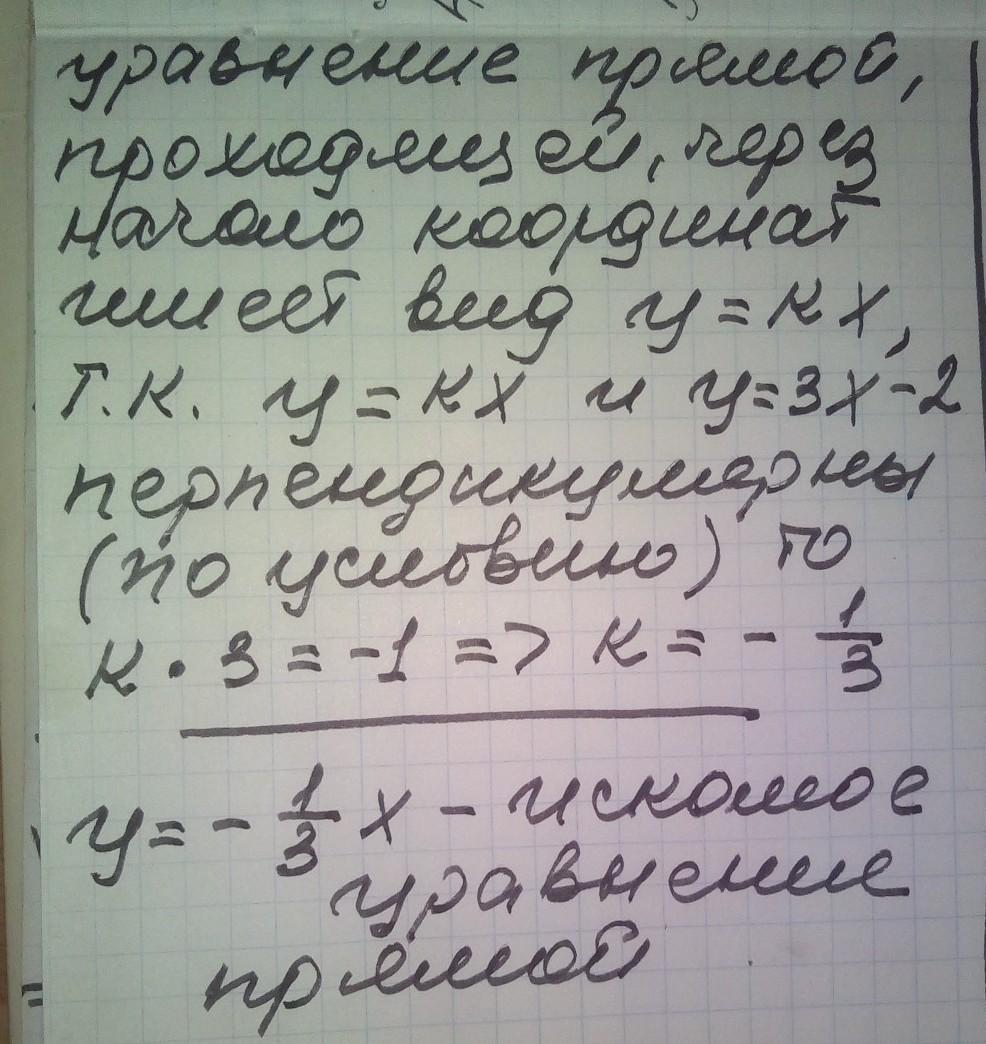 уравнение прямой,
проходящей, через
начало координат
имеет вид y = kx,
т.к. y = kx и y=3x-2
перпендикулярны
(по условию) то
k · 3 = -1 => k = - 1/3
y = - 1/3 x - искомое
уравнение
прямой